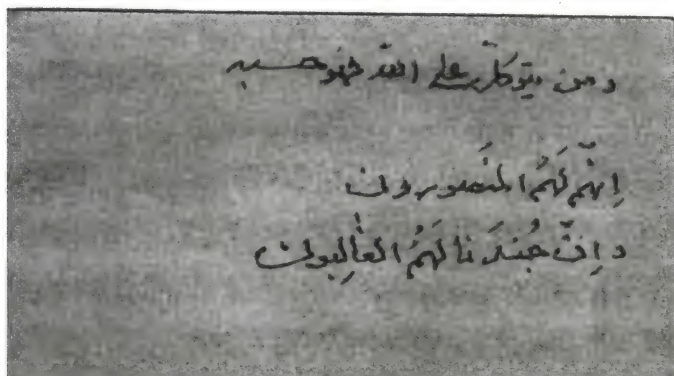 ومن يتوكلّ على الله فهو حسبه
اِنهّم لَهُم المنَصورون
واِنّ جُندَنا لَهُمُ الغٰالِبون